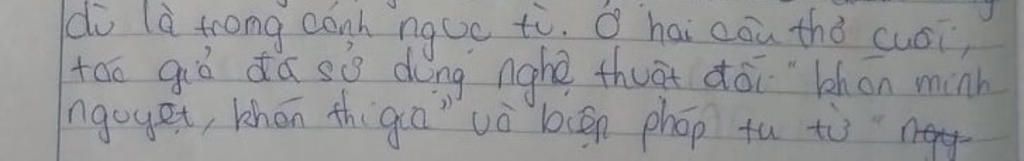 dù là trong cảnh ngục tù. Ở hai câu thơ cuối,
tác giả đã sử dụng nghệ thuật đối "khán minh
nguyệt, khán thi gia" và biện pháp tu từ "